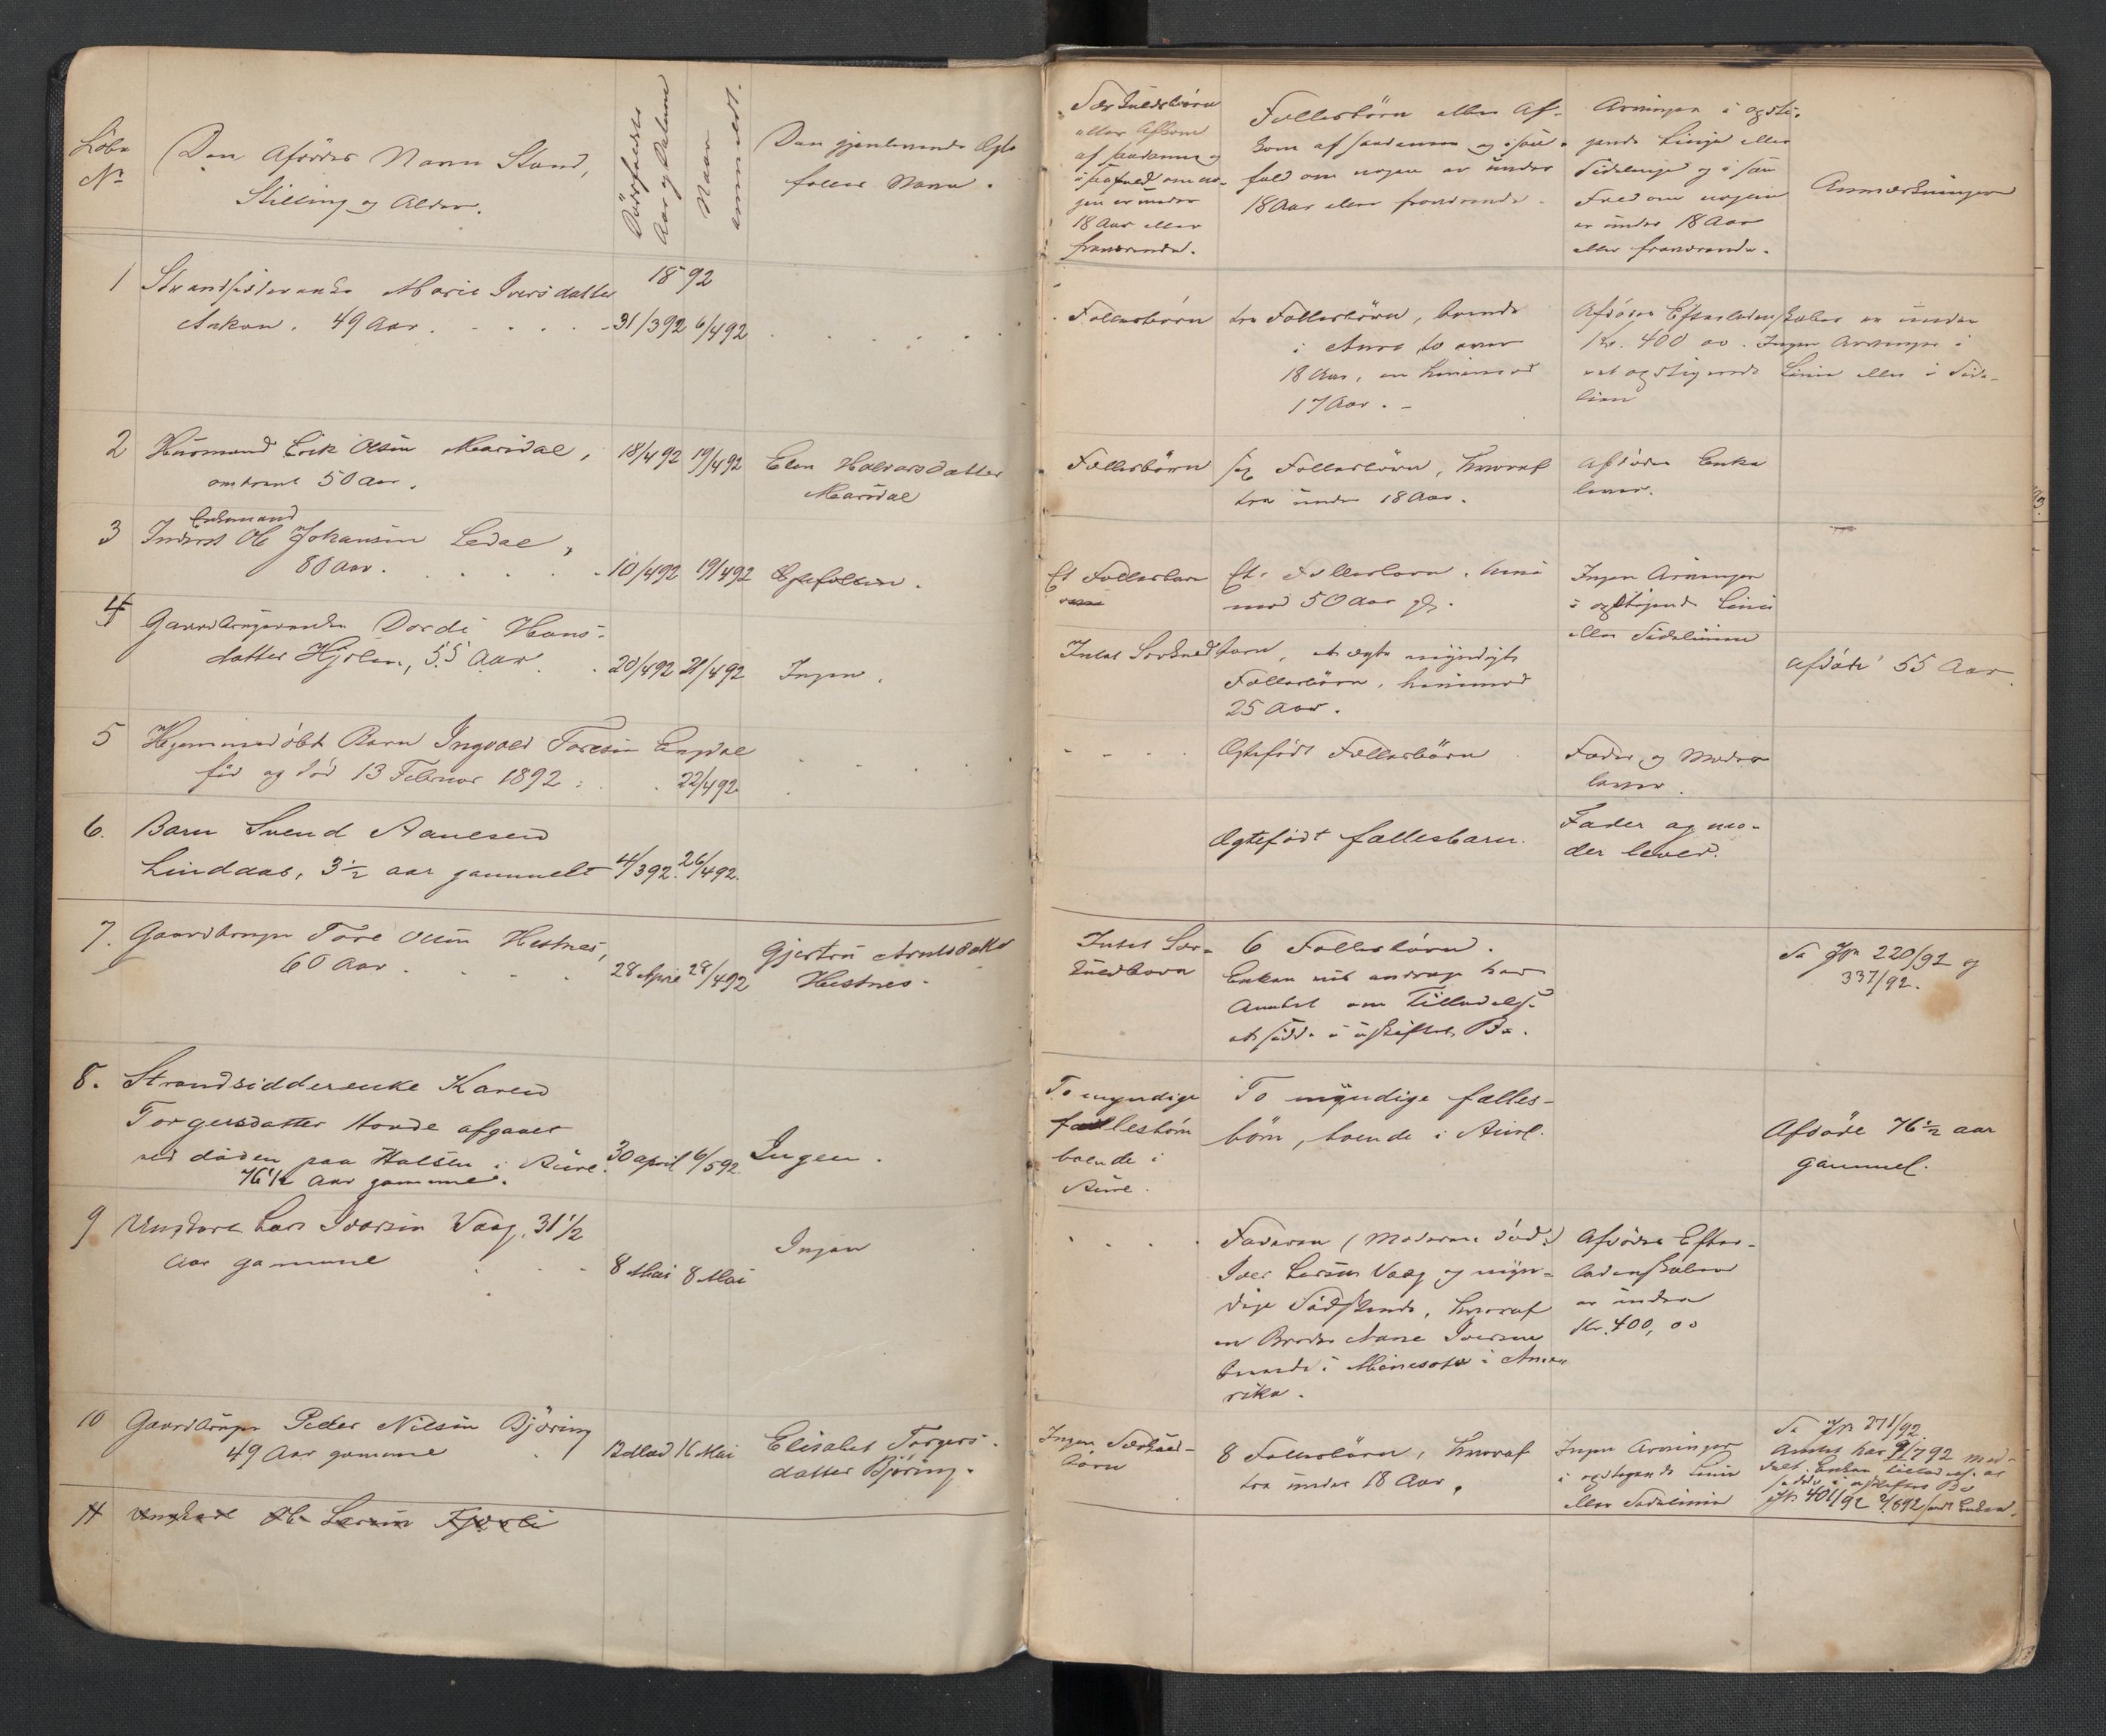 Löbe
No
Den Afdödes Navn Stand,
Stilling og Alder.
Dödsfaldets
Aar og Datum
Naar
anmeldt.
Den gjenlevende Ægte
fælles Navn.
Særkuldsbörn
eller Afkom
af saadanne og
i saafald om no-
gen er under
18 Aar eller
fraværende.
Fællesbörn eller Af-
kom af saadanne og i saa-
fald om nogen er under
18 Aar eller fraværende.
Arvinger i opsti-
gende Linje eller
Sidelinje og i saa
Fald om nogen
er under 18 Aar
eller fraværende.
Anmærkninger
1 Strandsidderenke Marie Iversdatter
18 92
49 Aar. 31/3 92 6/4 92
Fællesbörn
tre Fællesbörn, boende
i Aure to over
18 Aar, en
17 Aar. -
Afdödes Efterladenskaber er under
Kr. 400 00. Ingen Arvinger i
ret opstigende Linie eller i Side-
lien
2 Husmand Erik Olsen Mærsdal,
omtrent 50 Aar.
18/4 92 19/4 92
Elen Halvorsdatter
Mærsdal
Fællesbörn
sex Fællesbörn, hvoraf
tre under 18 Aar.
Afdödes Enke
lever.
Enkemand
3 Inderst Ole Johansen Ledal,
80 Aar. 10/4 92 19/4 92 Ægtefællen.
Et Fællesbarn
Et Fællesbarn,
med 50 Aar gl.
Ingen Arvinger
i opstigende Linie
eller Sidelinien
4 Gaardbrugerenke Dordi Hans-
datter Hjölen, 55 Aar 20/4 92 21/4 92 Ingen.
Intet Særkuldbarn, et ægte myndigt
Fællesbörn, henimod
25 Aar.
Afdöde 55 Aar.
5 Hjemmedöbt Barn Ingvald Toresen Engdal
föd og död 13 Februar 1892. 22/4 92
Ægtefödt Fællesbörn
Fader og Moder
lever.
6. Barn Svend Aanesen
Lindaas, 3 1/2 aar gammelt 4/3 92. 26/4 92.
Ægtefödt fællesbarn.
Fader og mo-
der lever.
7. Gaardbruger Tore Olsen Hestnes,
60 Aar. 28 April 28/4 92
Gjertru Arntsdatter
Hestnes.
Intet Sær-
kuldbarn
6 Fællesbörn.
Enken vil andrage hos
Amtet om Tilladelse
at sidde i uskiftet Bo.
Se Jr 220/92 og
337/92.
8. Strandsidderenke Karen
Torgersdatter Horde afgaaet
ved döden paa Halsen i Aure.
76 1/2 Aar gammel.
30 april 6/5 92. Ingen.
To myndige
fællesbörn
boende i
Aure.
To myndige fælles-
börn, boende i Aure.
Afdöde 76 1/2 aar
gammel.
9 Ungkarl Lars Iversen Vaag, 31 1/2
Aar gammel
8 Mai 8 Mai
Ingen
Faderen (Moderen död)
Iver Larsen Vaag og myn-
dige Södskende, hvoraf
en Broder Aane Iversen
boende i Minesota i Ame-
rika.
Afdödes Efter-
ladenskaber
er under
Kr. 400,00
10 Gaardbruger Peder Nilsen Björing
49 Aar gammel
16 Mai
Elisabet Torgers-
datter Björing.
Ingen Særkuld-
börn
8 Fællesbörn, hvoraf
tre under 18 Aar.
Ingen Arvinger
i opstigende Linie
eller Sidelinie
Se Jr 271/92.
Amtet har 9/7 92 med-
delt Enken tilladelse at
sidde i uskiftet Bo
Jr 401/92 2/8 92 sendt Enken.
11 Ungkarl Ole Larsen Fjærli